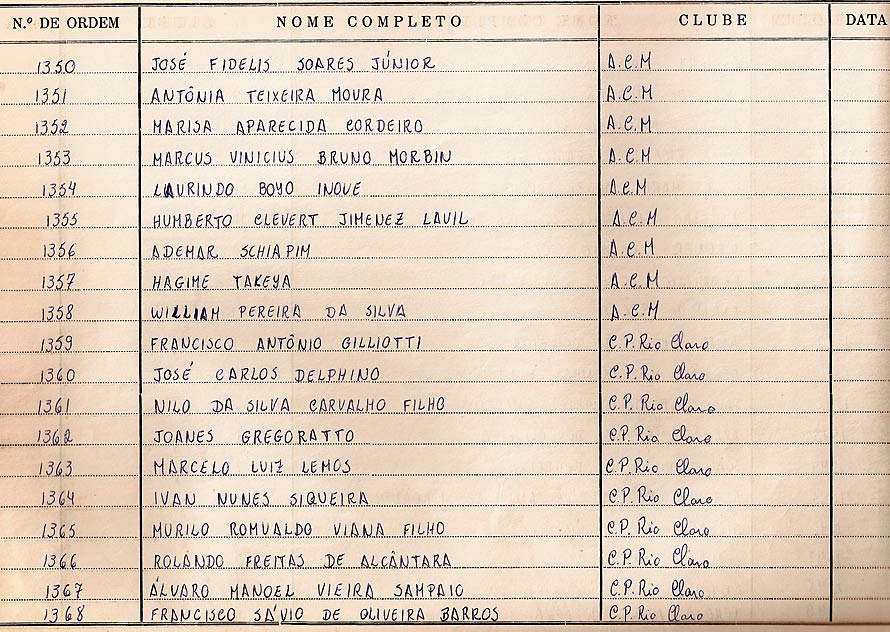 N.º DE ORDEM NOME COMPLETO CLUBE DATA
1350 JOSÉ FIDELIS SOARES JÚNIOR A.C.M
1351 ANTÔNIA TEIXEIRA MOURA A.C.M
1352 MARISA APARECIDA CORDEIRO A.C.M
1353 MARCUS VINICIUS BRUNO MORBIN A.C.M
1354 LAURINDO BOYO INOUE A.C.M
1355 HUMBERTO CLEVERT JIMENEZ LAVIL A.C.M
1356 ADEMAR SCHIAPIM A.C.M
1357 HAGIME TAKEYA A.C.M
1358 WILLIAM PEREIRA DA SILVA A.C.M
1359 FRANCISCO ANTÔNIO GILLIOTTI C.P. Rio Claro
1360 JOSÉ CARLOS DELPHINO C.P. Rio Claro
1361 NILO DA SILVA CARVALHO FILHO C.P. Rio Claro
1362 JOANES GREGORATTO C.P. Rio Claro
1363 MARCELO LUIZ LEMOS C.P. Rio Claro
1364 IVAN NUNES SIQUEIRA C.P. Rio Claro
1365 MURILO ROMUALDO VIANA FILHO C.P. Rio Claro
1366 ROLANDO FREITAS DE ALCÂNTARA C.P. Rio Claro
1367 ÁLVARO MANOEL VIEIRA SAMPAIO C.P. Rio Claro
1368 FRANCISCO SÁVIO DE OLIVEIRA BARROS C.P. Rio Claro